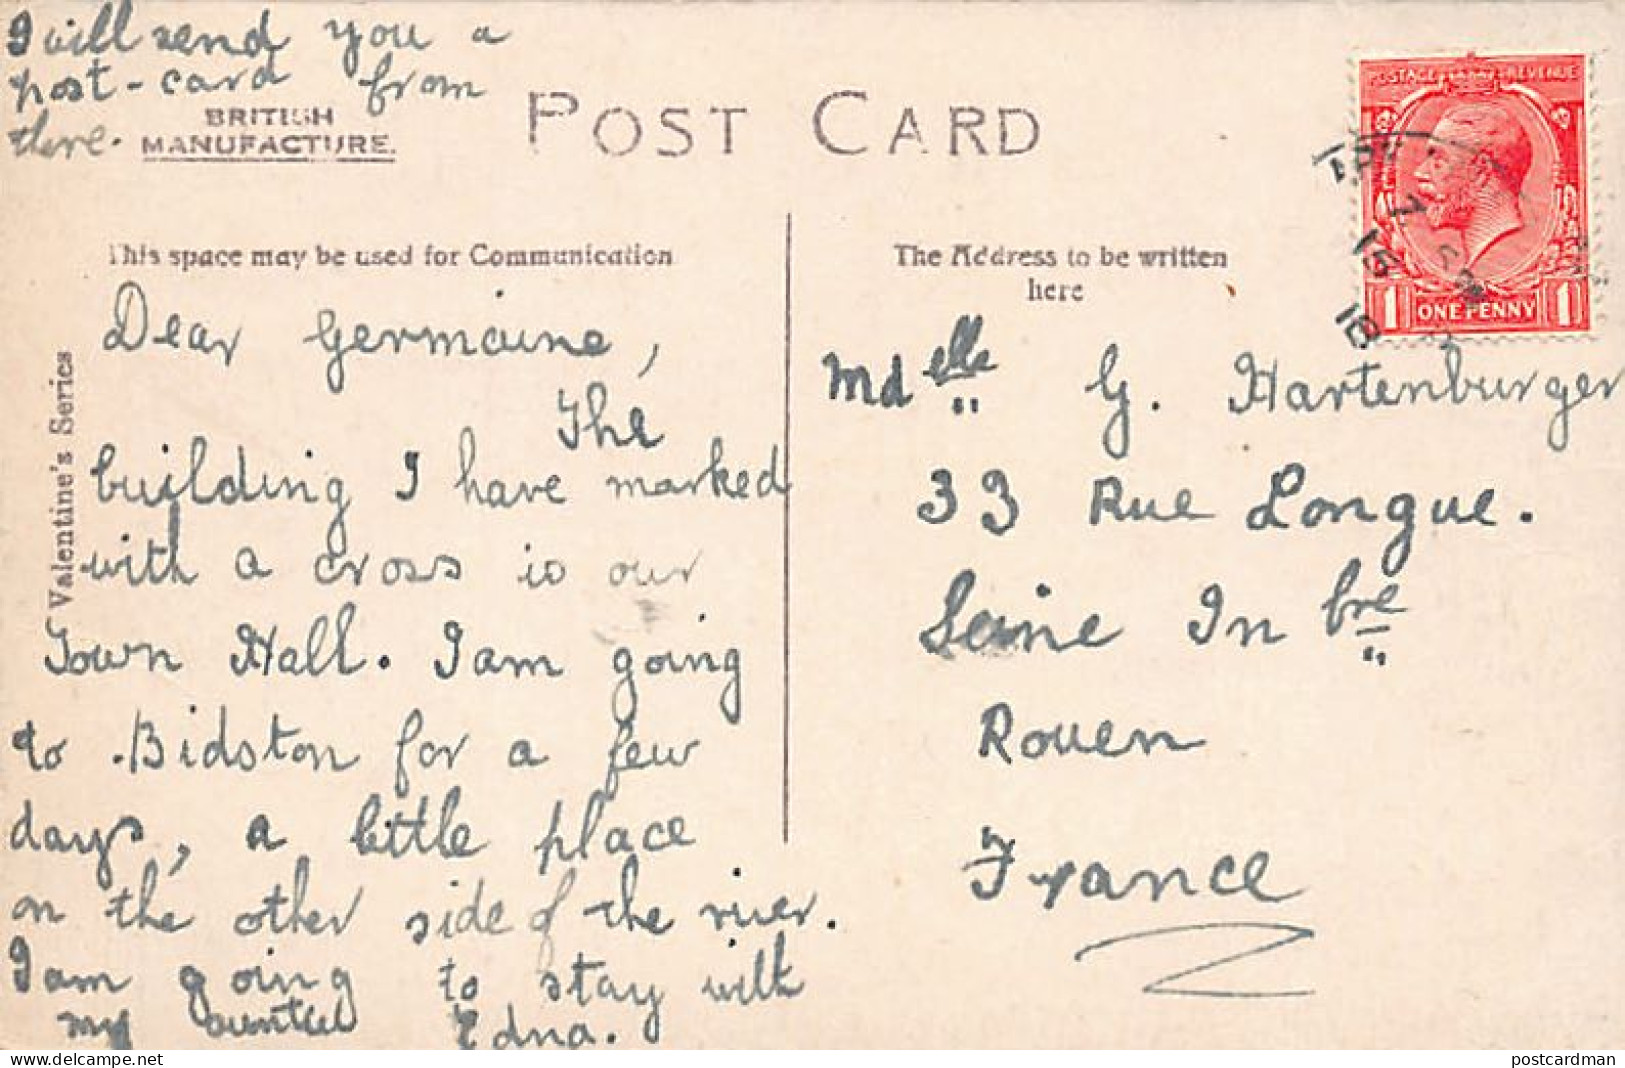 I will send you a
post-card from
there.
BRITISH
MANUFACTURE.
POST CARD
POSTAGE REVENUE
1 ONE PENNY 1
15
18
This space may be used for Communication
The Address to be written
here
Valentine's Series
Dear Germaine,
The
building I have marked
with a cross is our
Town Hall. I am going
to Bidston for a few
days, a little place
on the other side of the river.
I am going to stay with
my auntie Edna.
Mdelle G. Hartenburger
33 Rue Longue.
Seine Inbre
Rouen
France
postcardman
delcampe.net